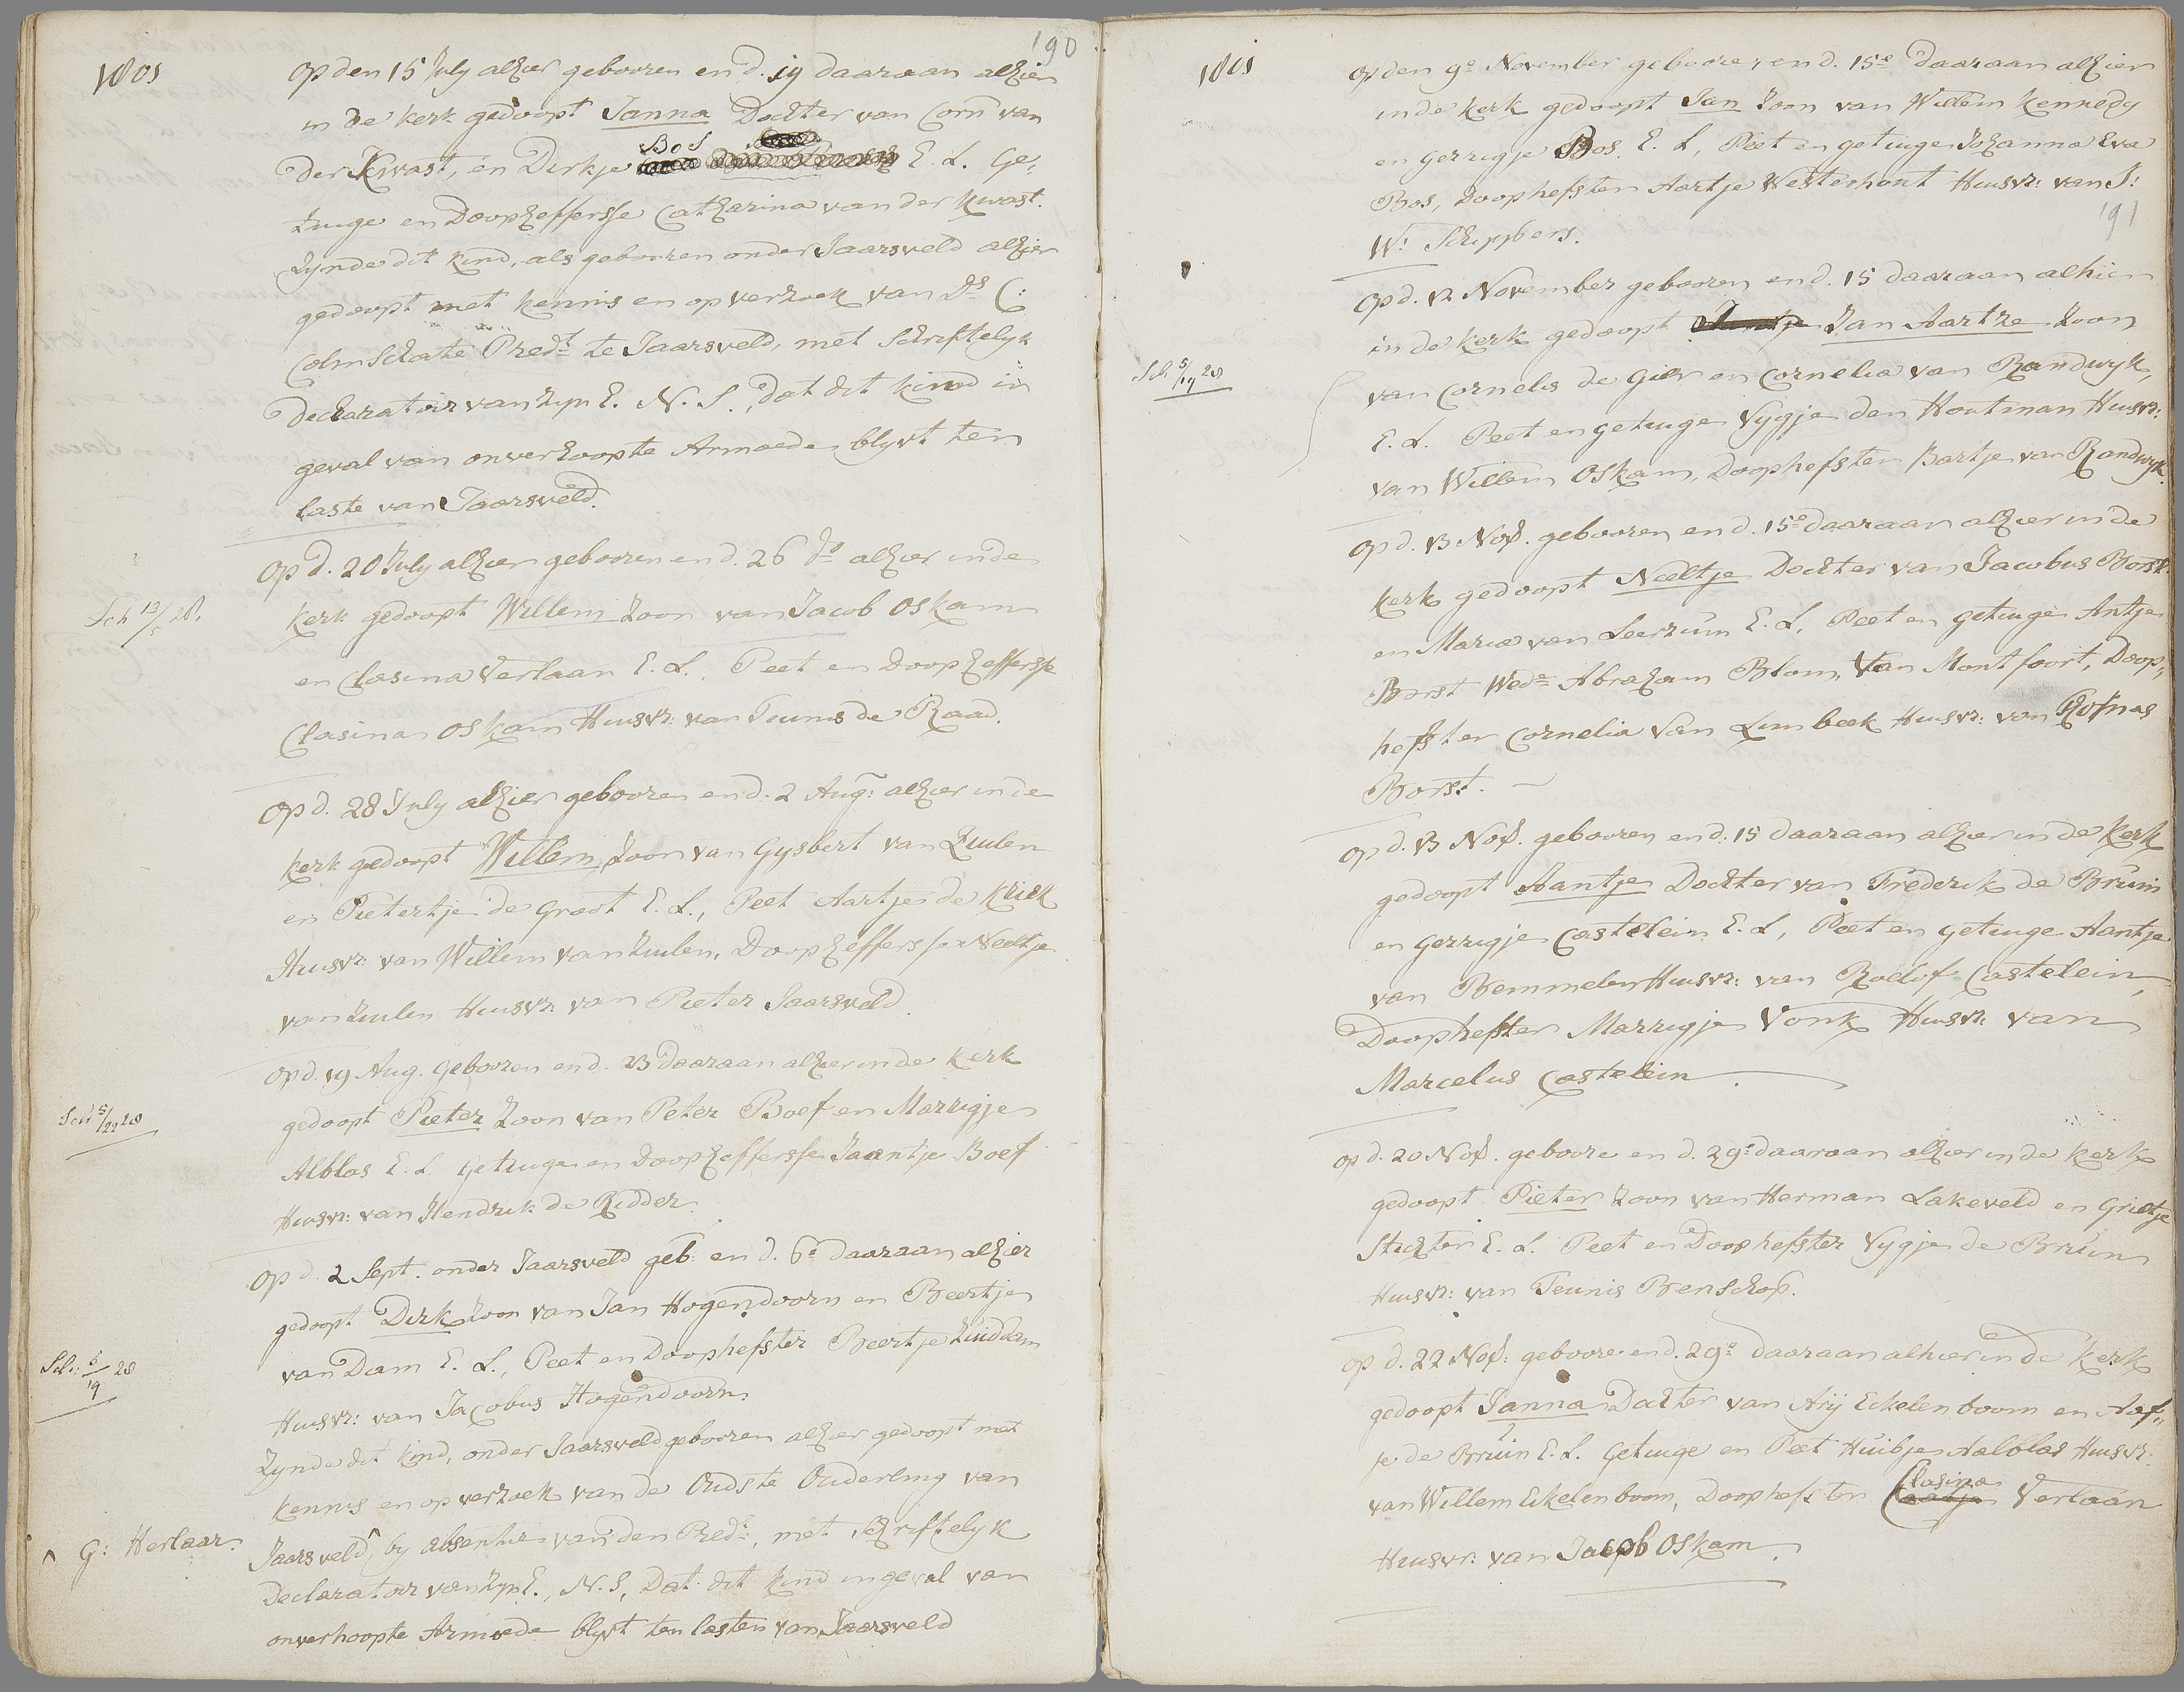 190
1801
Op den 15 July alhier gebooren en d. 19 daaraan alhier
in de kerk gedoopt Janna Dochter van Corn van
der Kwast, en Dirkje Bos E. L. Ge,
tuige en Doopheffersse Catharina van der Kwast.
Zynde dit kind, als gebooren onder Jaarsveld alhier
gedoopt met kennis en op verzoek van Ds C:
Colmschate Predt te Jaarsveld, met Schriftelyk
Declaratoir van Zyn E. N. S., dat dit kind in
geval van onverhoopte Armoede blyvt ten
laste van Jaarsveld.
Op d. 20 July alhier gebooren en d. 26 do alhier in de
Sch 13/5 28.
kerk gedoopt Willem Zoon van Jacob Oskam
en Clasina Verlaan E. L., Peet en Doopheffersse
Clasina Oskam Huisvr: van Teunis de Raad.
Op d. 28 July alhier gebooren en d. 2 Aug: alhier in de
kerk gedoopt Willem Zoon van Gysbert van Zuilen
en Pietertje de Groot E. L., Peet Aartje de Kriek
Huisvr: van Willem van Zuilen, Doopheffersse Neeltje
van Zuilen Huisvr: van Pieter Jaarsveld.
Op d. 19 Aug. Gebooren en d. 23 daaraan alhier in de kerk
Sch 5/22 28
gedoopt Pieter Zoon van Peter Boef en Marrigje
Alblas E. L. Getuige en Doopheffersse Jaantje Boef
Huisvr: van Hendrik de Ridder.
Op d. 2 Sept. onder Jaarsveld geb: en d. 6e daaraan alhier
gedoopt Dirk Zoon van Jan Hogendoorn en Beertje
Sch: 5/19 28
van Dam E. L., Peet en Doophefster Beertje Zuiddam
Huisvr: van Jacobus Hogendoorn.
Zynde dit kind, onder Jaarsveld gebooren alhier gedoopt met
kennis en op verzoek van de Oudste Ouderling van
^ G: Herlaar.
Jaarsveld^, by absentie van den Predt:, met Schriftelyk
Declaratoir van Zyn E., N. S, Dat dit kind ingeval van
onverhoopte Armoede blyvt ten lasten van Jaarsveld
1801
Op den 9e November geboore, en d. 15e daaraan alhier
in de kerk gedoopt Jan Zoon van Willem Kennedy
en Gerrigje Bos. E. L, Peet en getuige Johanna Eva
Bos, Doophefster Aartje Westerhout Huisvr: van J:
191
W: Schippers.
Op d. 12 November gebooren en d. 15 daaraan alhier
in de kerk gedoopt Jan Aartze Zoon
Sch 5/19 28
van Cornelis de Gier en Cornelia van Randwyk,
E. L. Peet en getuige Vygje den Houtman Huisvr:
van Willem Oskam, Doophefster Bartje van Randwyk.
Op d. 13 Nov. gebooren en d. 15e daaraan alhier in de
kerk gedoopt Neeltje Dochter van Jacobus Borst
en Maria van Leerzum E. L. Peet en getuige Antje
Borst Wede Abraham Blom, Van Montfoort, Doop,
hefster Cornelia van Limbeek Huisvr: van Rufnas
Borst.
Op d. 13 Nov. gebooren en d. 15 daaraan alhier in de kerk
gedoopt Aantje Dochter van Frederik de Bruin
en Gerrigje Castelein E. L, Peet en getuige Aantje
van Bemmelen Huisvr: van Roelof Castelein,
Doophefster Marrigje Vonk Huisvr: van
Marcelus Castelein.
Op d. 20 Nov. geboore en d. 29e daaraan alhier in de kerk
gedoopt Pieter Zoon van Herman Lakeveld en Grietje
Stichter E. L. Peet en Doophefster Vygje de Bruin
Huisvr: van Teunis Benschop.
Op d. 22 Nov: geboore en d. 29e daaraan alhier in de kerk
gedoopt Janna Dochter van Ary Eekelenboom en Aaf,,
je de Bruin E. L. Getuige en Peet Huibje Aalblas Huisvr:
van Willem Eekelenboom, Doophefster Clasina Verlaan
Huisvr. van Jacob Oskam.